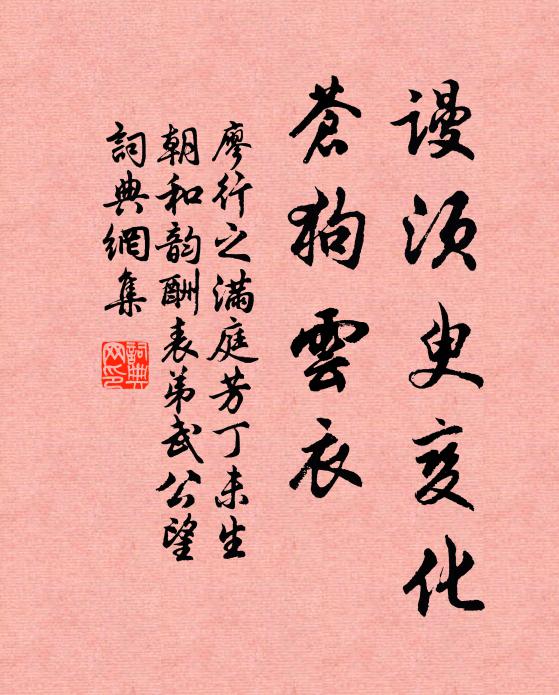 謾須臾變化
蒼狗雲衣
廖行之滿庭芳丁未生
朝和韵酬表弟武公望
詞典網集
詞典網印